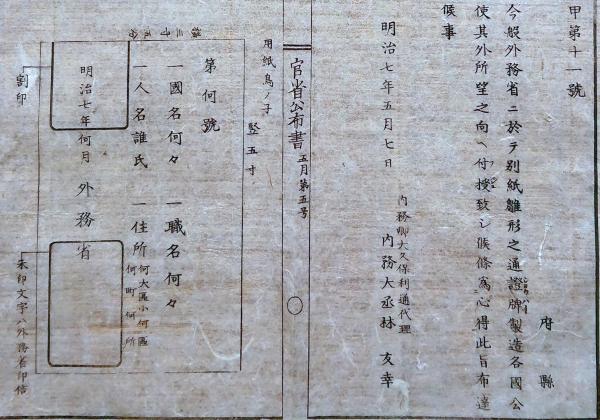 甲第十一號
府縣
今般外務省ニ於テ別紙雛形之通證牌製造各國公
使其外所望之向ヘ付授致シ候條爲心得此旨布達
候事
明治七年五月七日
内務卿大久保利通代理
内務大丞林友幸
官省公布書 五月第五号
用紙鳥ノ子
竪五寸
第何號
一國名何々 一職名何々
一人名誰氏 一住所 何大區小何區 何町何所
明治七年何月 外務省
割印
朱印文字ハ外務省印信